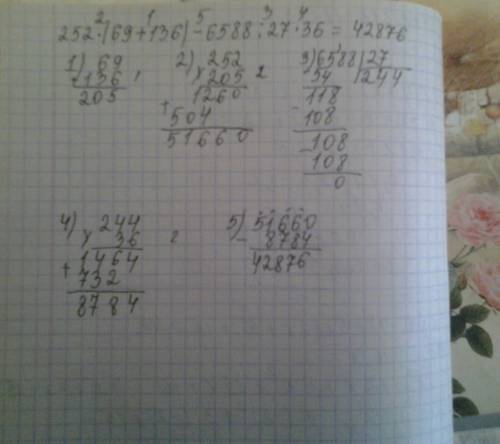 2 1 5 3 4
252·(69+136)-6588:27·36=42876
1) 69
+136
205
2) 252
×205
1260
+504
51660
3) 6588 | 27
54 | 244
118
-108
-108
108
0
4) 244
×36
1464
+732
8784
5) 51660
-8784
42876